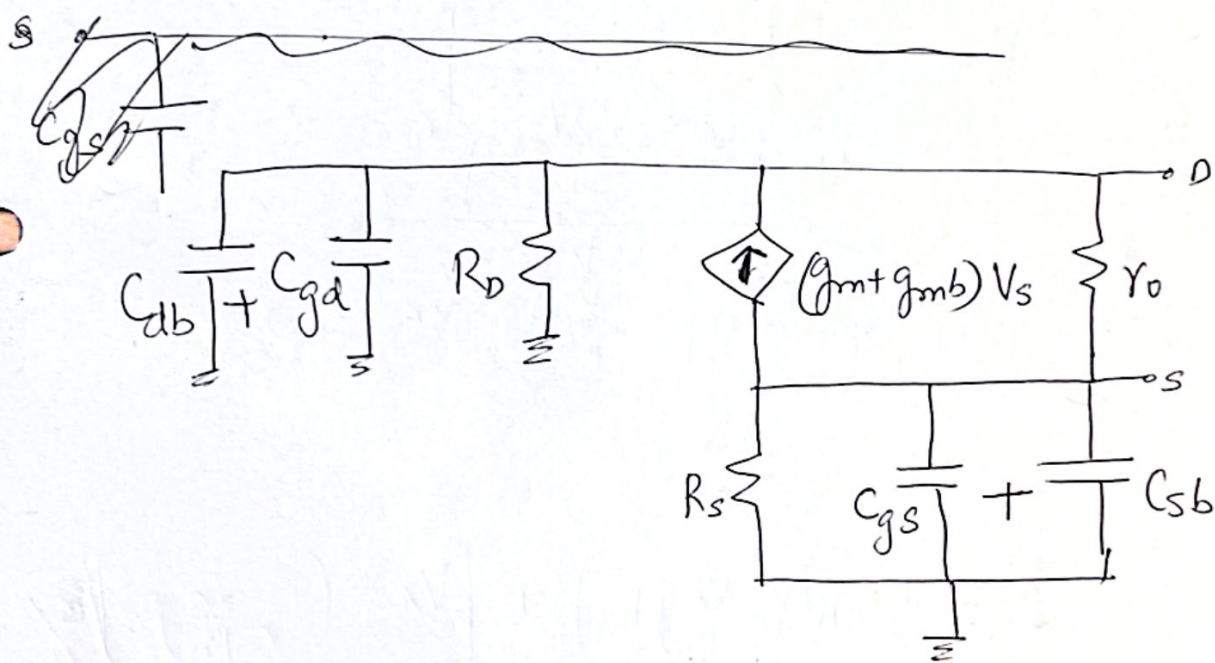 D
C_db + C_gd
R_D
(g_m + g_mb) V_s
r_o
S
R_s
C_gs + C_sb